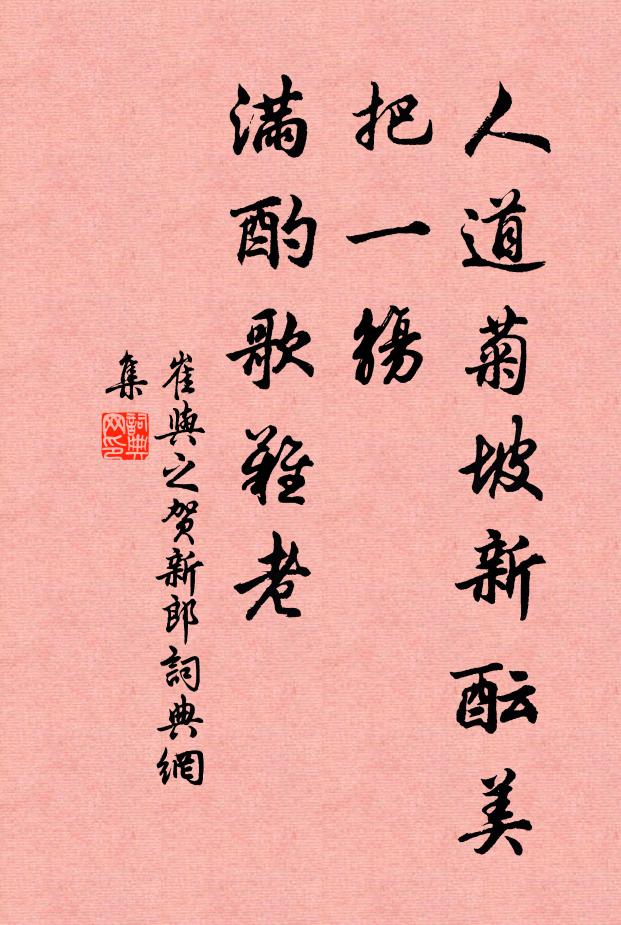 人道菊坡新醞美
把一觴
滿酌歌難老
崔與之賀新郎詞典網
集
詞典網印